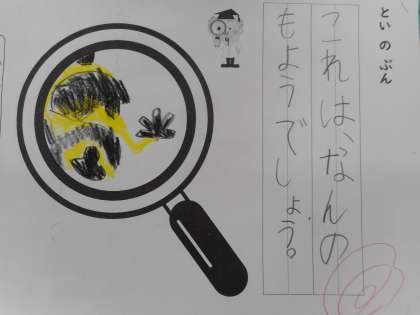 といのぶん
これは、なんの
もようでしょう。